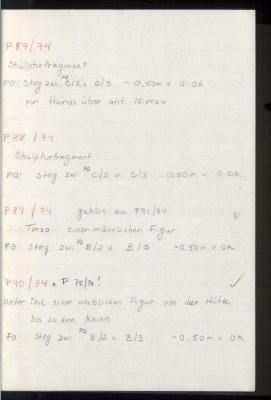 P87/74
Skulpturfragment
FO: Steg zwi. PQ C/2 u. C/3 - 0,50m v O-Ok
von Humus über ant Niveau
P88/74
Skulpturfragment
FO: Steg zwi PQ C/2 u. C/3 - 0,50m v O Ok
P89/74 gehört zu P91/74
Torso einer männlichen Figur
FO: Steg zwi PQ B/2 u. B/3 ~0,50m v OK
P90/74 + P 75/74!
Unter Teil einer weiblichen Figur von der Hüfte
bis zu den Knien
FO: Steg zwi PQ B/2 u. B/3 ~0,50m v. OK